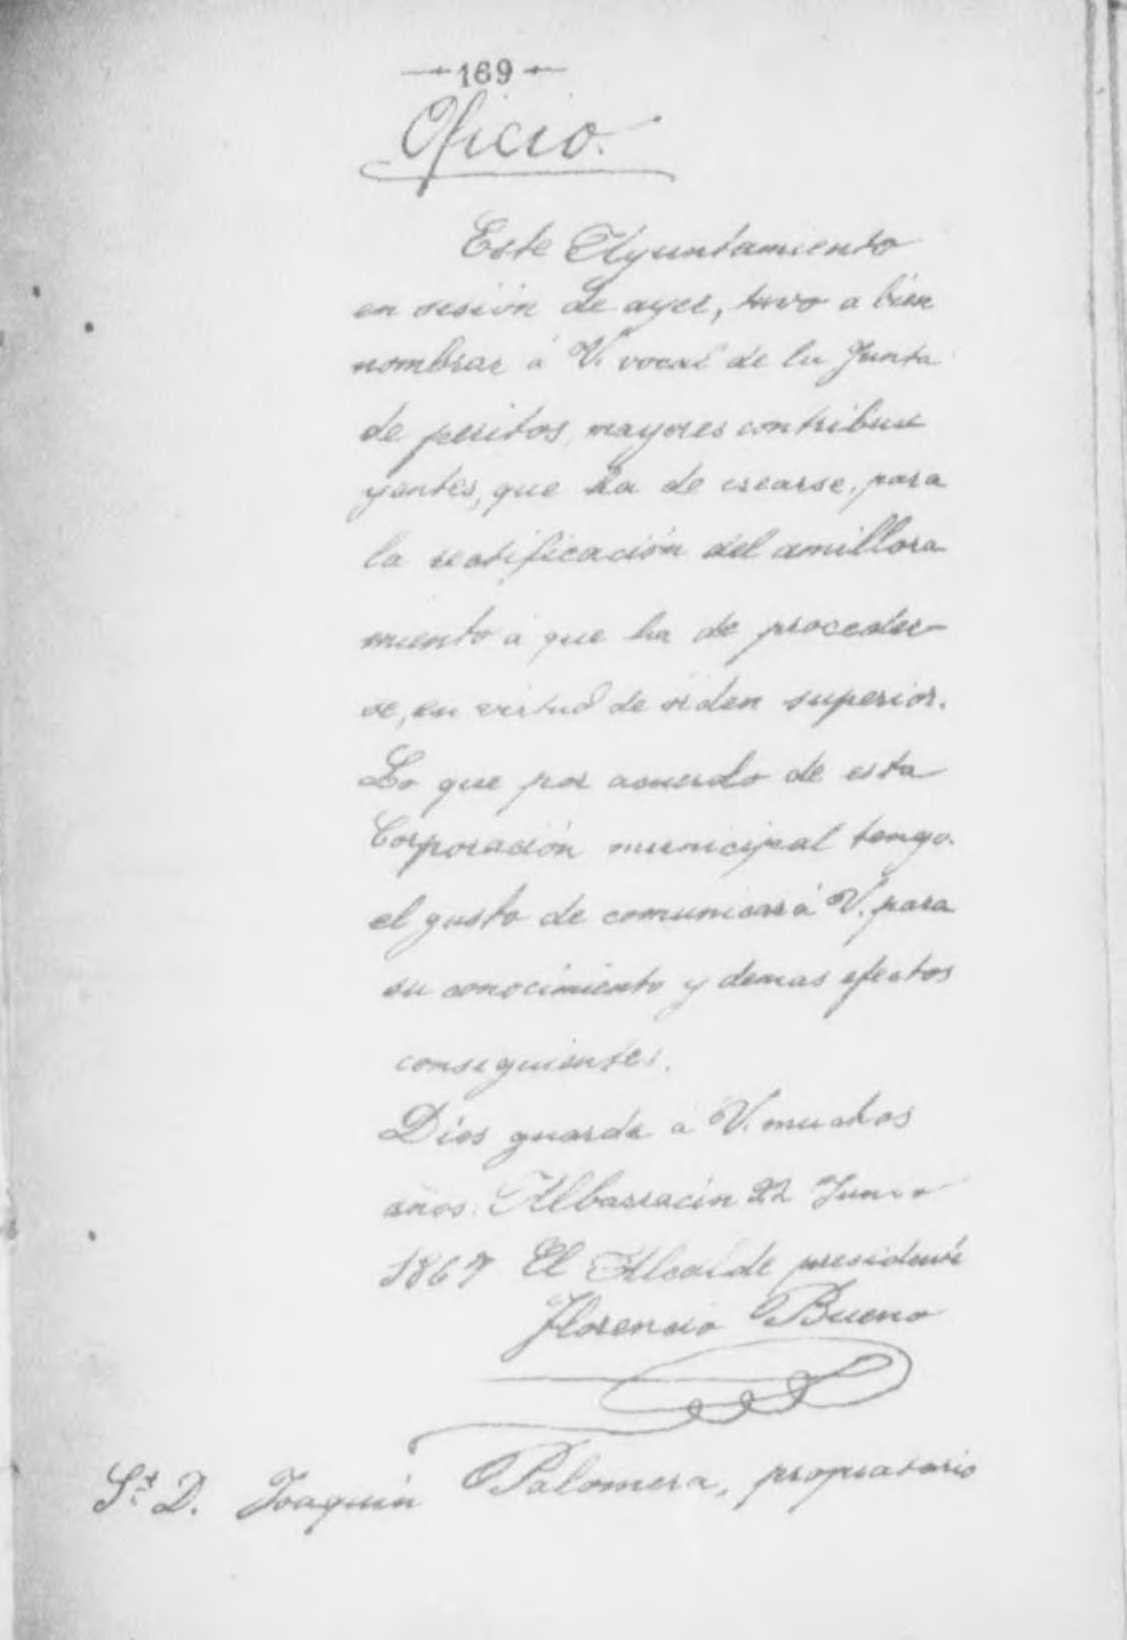 169
Oficio.
Este Ayuntamiento
en sesión de ayer, tuvo a bien
nombrar á V. vocal de la Junta
de peritos, mayores contribu
yentes, que ha de crearse, para
la rectificación del amillora
miento á que ha de proceder
se, en virtud de orden superior.
Lo que por acuerdo de esta
Corporación municipal tengo
el gusto de comunicar á V. para
su conocimiento y demas efectos
consiguientes.
Dios guarde a V. muchos
años. Albarracín 22 Junio
1867 El Alcalde presidente
Florencio Bueno
Sr. D. Joaquín Palomera, propiatario